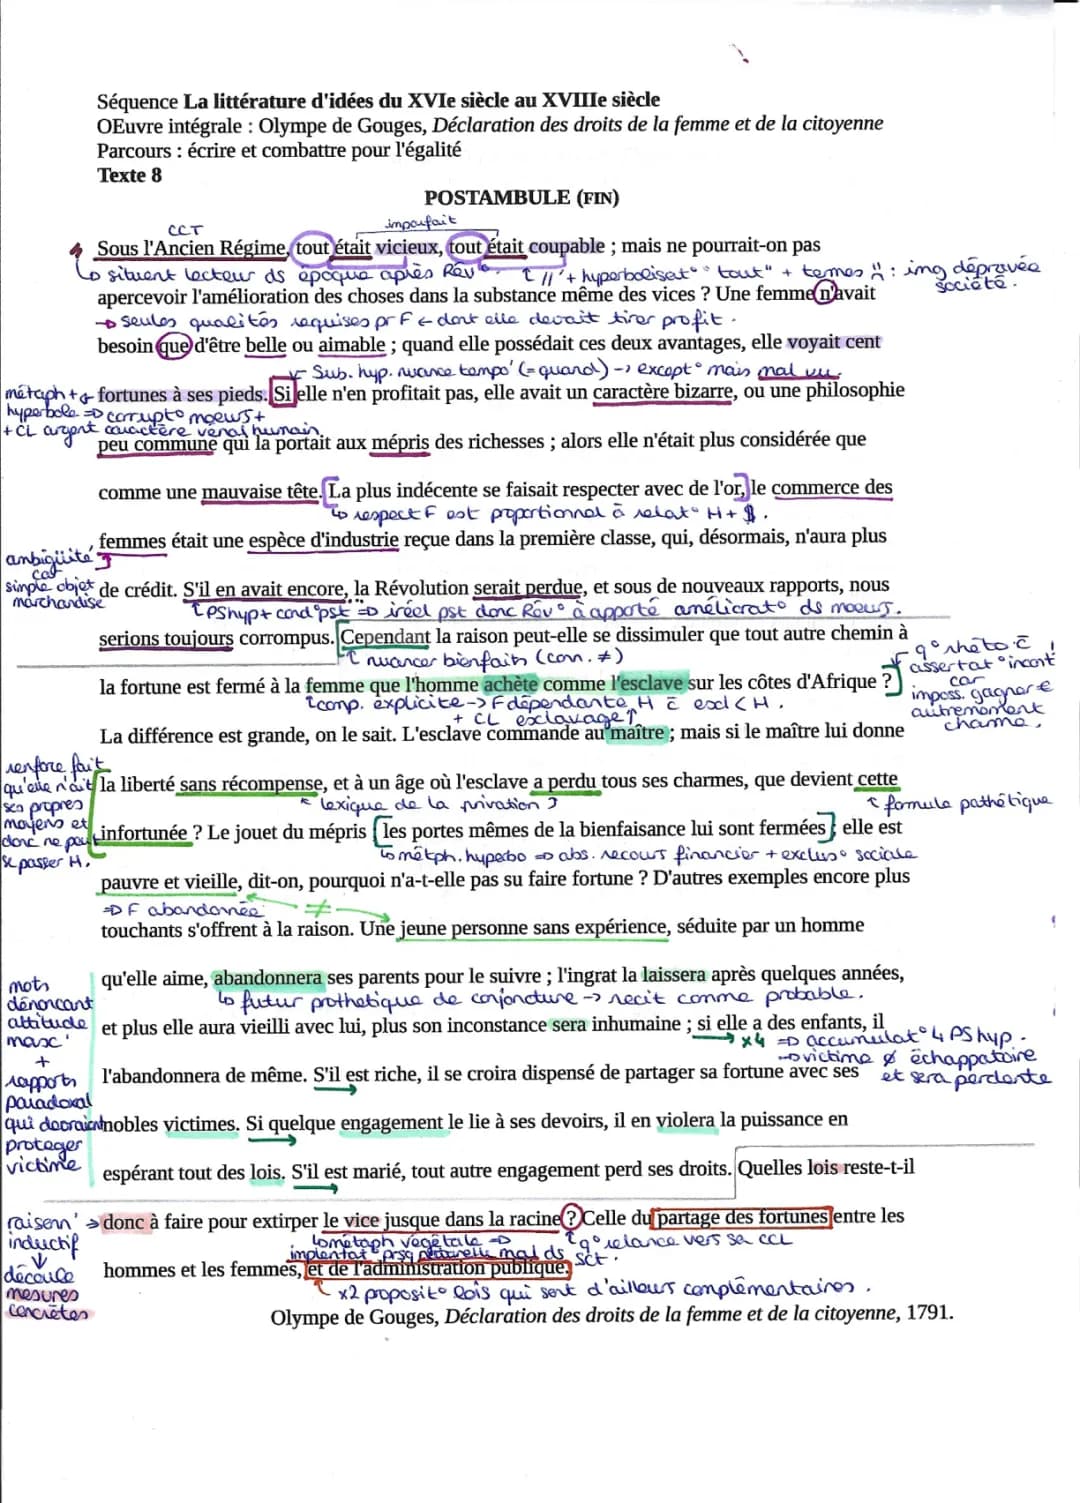 Séquence La littérature d'idées du XVIe siècle au XVIIIe siècle
OEuvre intégrale : Olympe de Gouges, Déclaration des droits de la femme et de la citoyenne
Parcours : écrire et combattre pour l'égalité
Texte 8
POSTAMBULE (FIN)
CCT
imparfait
Sous l'Ancien Régime, tout était vicieux, tout était coupable ; mais ne pourrait-on pas
↳ situent lecteur ds époque après Rév°. ↑ // + hyperbolisat° "tout" + termes : img dépravée société.
apercevoir l'amélioration des choses dans la substance même des vices ? Une femme n'avait
→ seules qualités requises pr F ← dont elle devait tirer profit.
besoin que d'être belle ou aimable ; quand elle possédait ces deux avantages, elle voyait cent
Sub. hyp. nuance tempo' (= quand) → except° mais mal vu.
métaph + hyperbole => corrupt° moeurs + + CL argent caractère vénal humain
fortunes à ses pieds. Si elle n'en profitait pas, elle avait un caractère bizarre, ou une philosophie
peu commune qui la portait aux mépris des richesses ; alors elle n'était plus considérée que
comme une mauvaise tête. La plus indécente se faisait respecter avec de l'or, le commerce des
↳ respect F est proportionnel à relat° H + $.
femmes était une espèce d'industrie reçue dans la première classe, qui, désormais, n'aura plus
ambigüité car simple objet marchandise
de crédit. S'il en avait encore, la Révolution serait perdue, et sous de nouveaux rapports, nous
↑ PShyp + cond° pst => iréel pst donc Rév° à apporté améliorat° ds moeurs.
serions toujours corrompus. Cependant la raison peut-elle se dissimuler que tout autre chemin à
↑ nuancer bienfaits (conn. ≠)
q° rhéto. c̄ assertat° incont ! car imposs. gagner € autrement charme.
la fortune est fermé à la femme que l'homme achète comme l'esclave sur les côtes d'Afrique ?
↑ comp. explicite → F dépendante H c̄ escl < H.
+ CL esclavage ↑
La différence est grande, on le sait. L'esclave commande au maître ; mais si le maître lui donne
renforce fait qu'elle n'ait ses propres moyens et donc ne peut se passer H.
la liberté sans récompense, et à un âge où l'esclave a perdu tous ses charmes, que devient cette
lexique de la privation
↑ formule pathétique
infortunée ? Le jouet du mépris les portes mêmes de la bienfaisance lui sont fermées ; elle est
↳ métph. hyperbo => abs. recours financier + exclus° sociale
pauvre et vieille, dit-on, pourquoi n'a-t-elle pas su faire fortune ? D'autres exemples encore plus
=> F abandonnée ≠
touchants s'offrent à la raison. Une jeune personne sans expérience, séduite par un homme
qu'elle aime, abandonnera ses parents pour le suivre ; l'ingrat la laissera après quelques années,
↳ futur prothetique de conjoncture → récit comme probable.
mots dénonçant attitude masc' + rapports paradoxal qui devraient proteger victime
et plus elle aura vieilli avec lui, plus son inconstance sera inhumaine ; si elle a des enfants, il
x4 => accumulat° 4 PS hyp.
→ victime ø échappatoire et sera perdante
l'abandonnera de même. S'il est riche, il se croira dispensé de partager sa fortune avec ses
nobles victimes. Si quelque engagement le lie à ses devoirs, il en violera la puissance en
espérant tout des lois. S'il est marié, tout autre engagement perd ses droits. Quelles lois reste-t-il
raisonn' inductif ↓ découle mesures concrètes
donc à faire pour extirper le vice jusque dans la racine ? Celle du partage des fortunes entre les
↳ métaph végétale => implentat° prsq naturelle mal ds sct.
↑ q° relance vers sa CCL
hommes et les femmes, et de l'administration publique.
x2 proposit° lois qui sont d'ailleurs complémentaires.
Olympe de Gouges, Déclaration des droits de la femme et de la citoyenne, 1791.